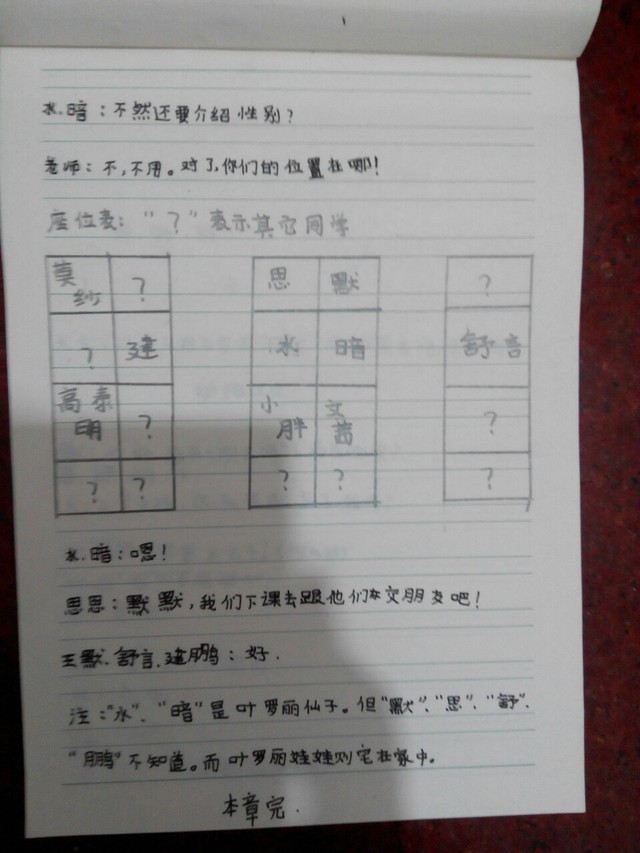 水.暗：不然还要介绍性别？
老师：不，不用。对了，你们的位置在哪！
座位表："？"表示其它同学
莫纱 ？ 思 默 ？
？ 建 水 暗 舒言
高泰明 ？ 小胖 文茜 ？
？ ？ ？ ？ ？
水.暗：嗯！
思思：默默，我们下课去跟他们交朋友吧！
王默.舒言.建鹏：好.
注："水"、"暗"是叶罗丽仙子。但"默"、"思"、"舒"、
"鹏"不知道。而叶罗丽娃娃则宅在家中。
本章完.